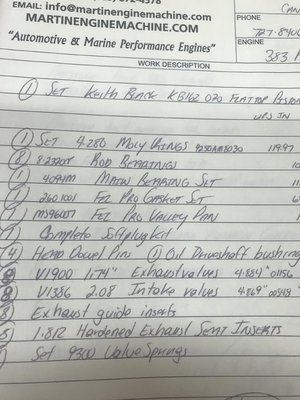 EMAIL: info@martinenginemachine.com
MARTINENGINEMACHINE.COM
"Automotive & Marine Performance Engines"
PHONE
ENGINE
383
WORK DESCRIPTION
① Set Keith Black KB162 020 Flat top Piston
UPS IN
① Set 4.280 Moly Rings 9250AM8030 11997
⑧ Rod Bearings
① 4094M Main Bearing Set
① 260 1001 Fel Pro Gasket Set
1 MS96007 Fel Pro Valley Pan
1 Complete Softplug Kit
④ Head Dowel Pins ① Oil Driveshaft bushing
⑧ V1900 1.74" Exhaust valves 4.884"
8 V1386 2.08 Intake valves 4.869"
⑧ Exhaust guide inserts
1.812 Hardened Exhaust Seat Inserts
Set 9300 Value Springs